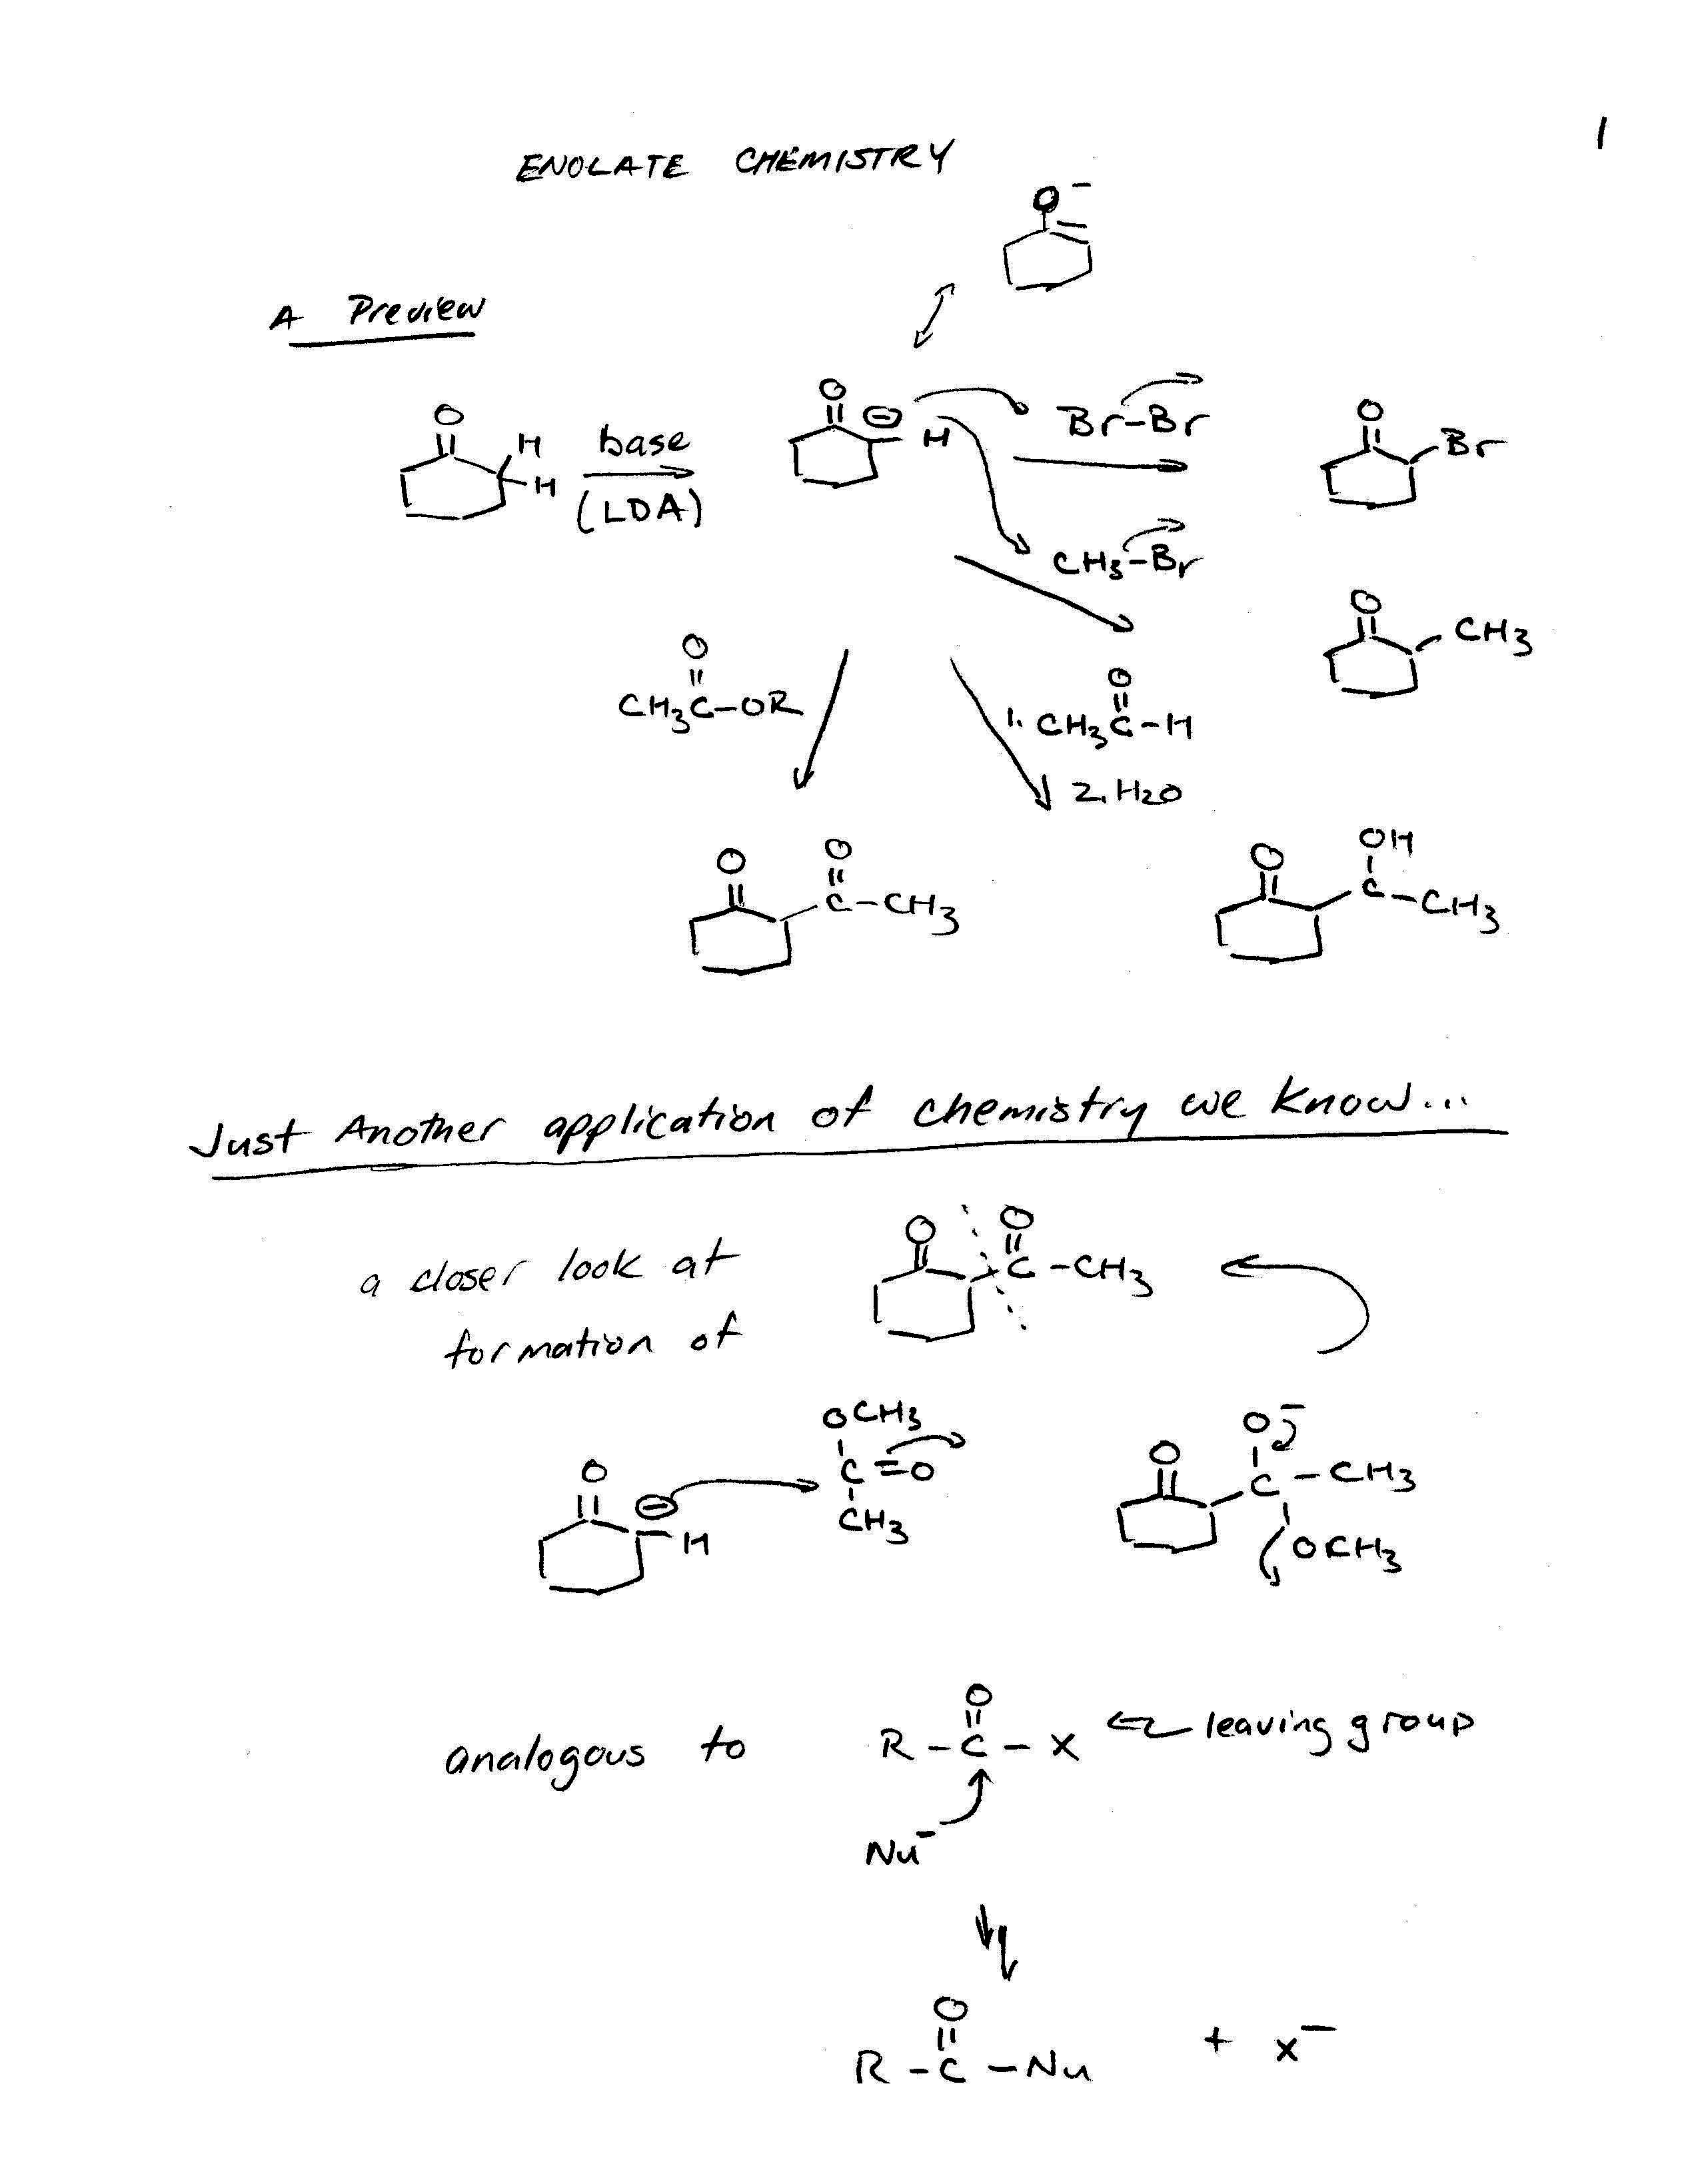 1
ENOLATE CHEMISTRY
O⁻
A Preview
O
H
H
base
(LDA)
O
⊖
H
Br-Br
O
Br
CH3-Br
O
CH3
O
CH3C-OR
O
1. CH3C-H
2. H2O
O
O
C-CH3
O
OH
C-CH3
Just Another application of chemistry we know...
a closer look at
formation of
O
O
C-CH3
O
⊖
H
OCH3
C=O
CH3
O
O⁻
C-CH3
OCH3
analogous to
O
R-C-X
leaving group
Nu⁻
O
R-C-Nu + X⁻